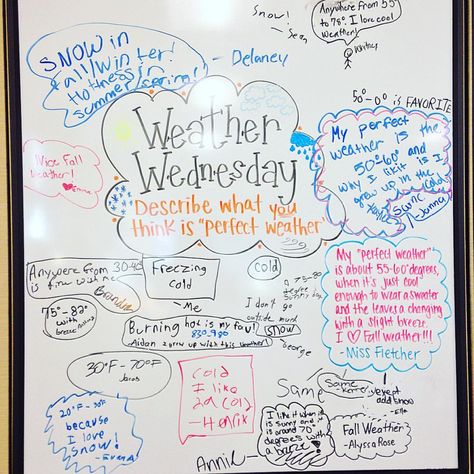 Snow!
Sean
Anywhere from 55
to 75°. I love cool
weather!
Whitney
SNOW in
Fall/Winter!
Hotness in
summer/spring!
- Delaney
Weather
Wednesday
Describe what you
think is "perfect weather"
50°-0° is FAVORITE
My perfect
weather is the
50°-60° and
why I like it is I
grew up in the
cold
Nice Fall
weather!
Emma
Anywhere from 30-40
is fine with me
Freezing
cold
- Me
cold
I don't go
outside much
75°-82°
with
Burning hot is my fav!
Aidan I grew up with this weather!
snow
George
My "perfect weather"
is about 55-60 degrees,
when it's just cool
enough to wear a sweater
and the leaves a changing
with a slight breeze.
I ♡ Fall weather!!!
- Miss Fletcher
20°F - 70°F
Cold
I like
- Henrik
because
I love
snow!
Same
Same
I like it when it
is sunny and
is around 70
degrees with
a breeze
Annie
add snow
Fall Weather
- Alyssa Rose